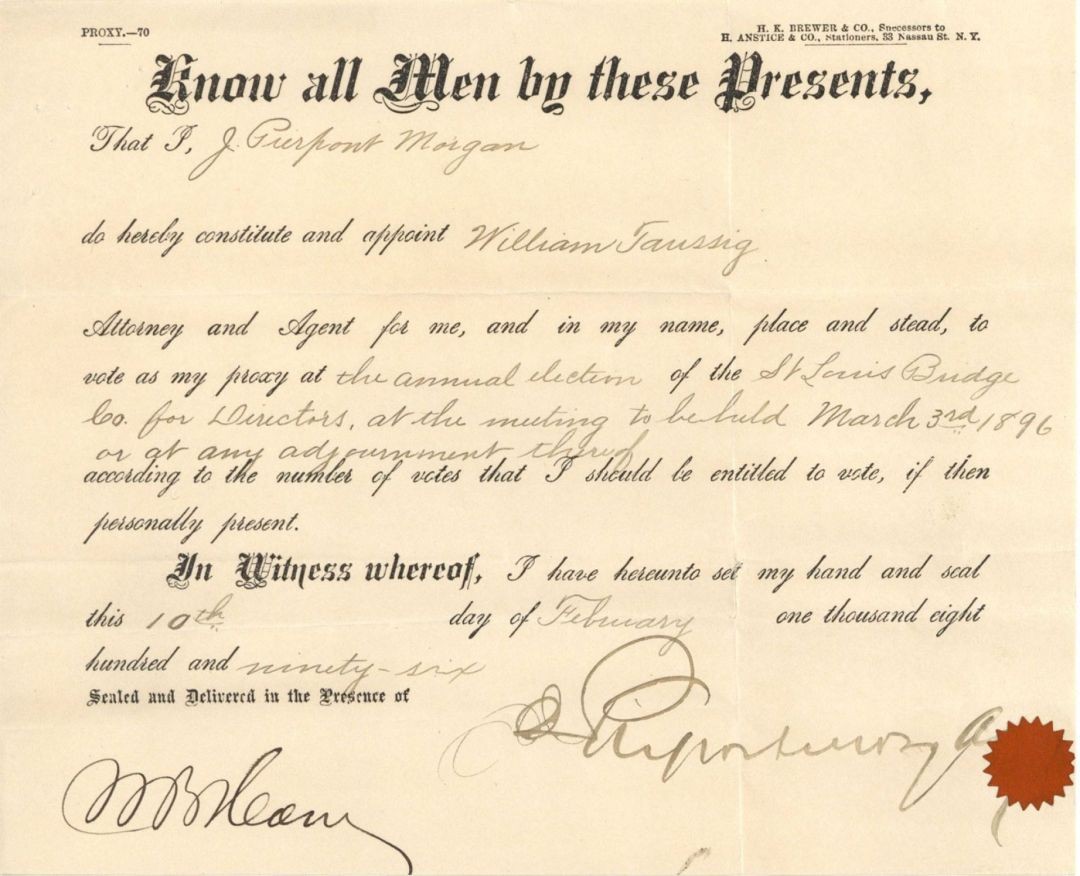 PROXY.—70
H. K. BREWER & CO., Successors to
H. ANSTICE & CO., Stationers, 53 Nassau St. N. Y.
Know all Men by these Presents,
That I, J. Pierpont Morgan
do hereby constitute and appoint William Taussig
Attorney and Agent for me, and in my name, place and stead, to
vote as my proxy at the annual election of the St Louis Bridge
Co. for Directors, at the meeting to be held March 3rd 1896
or at any adjournment thereof
according to the number of votes that I should be entitled to vote, if then
personally present.
In Witness whereof, I have hereunto set my hand and seal
this 10th day of February one thousand eight
hundred and ninety-six
Sealed and Delivered in the Presence of
J. Pierpont Morgan